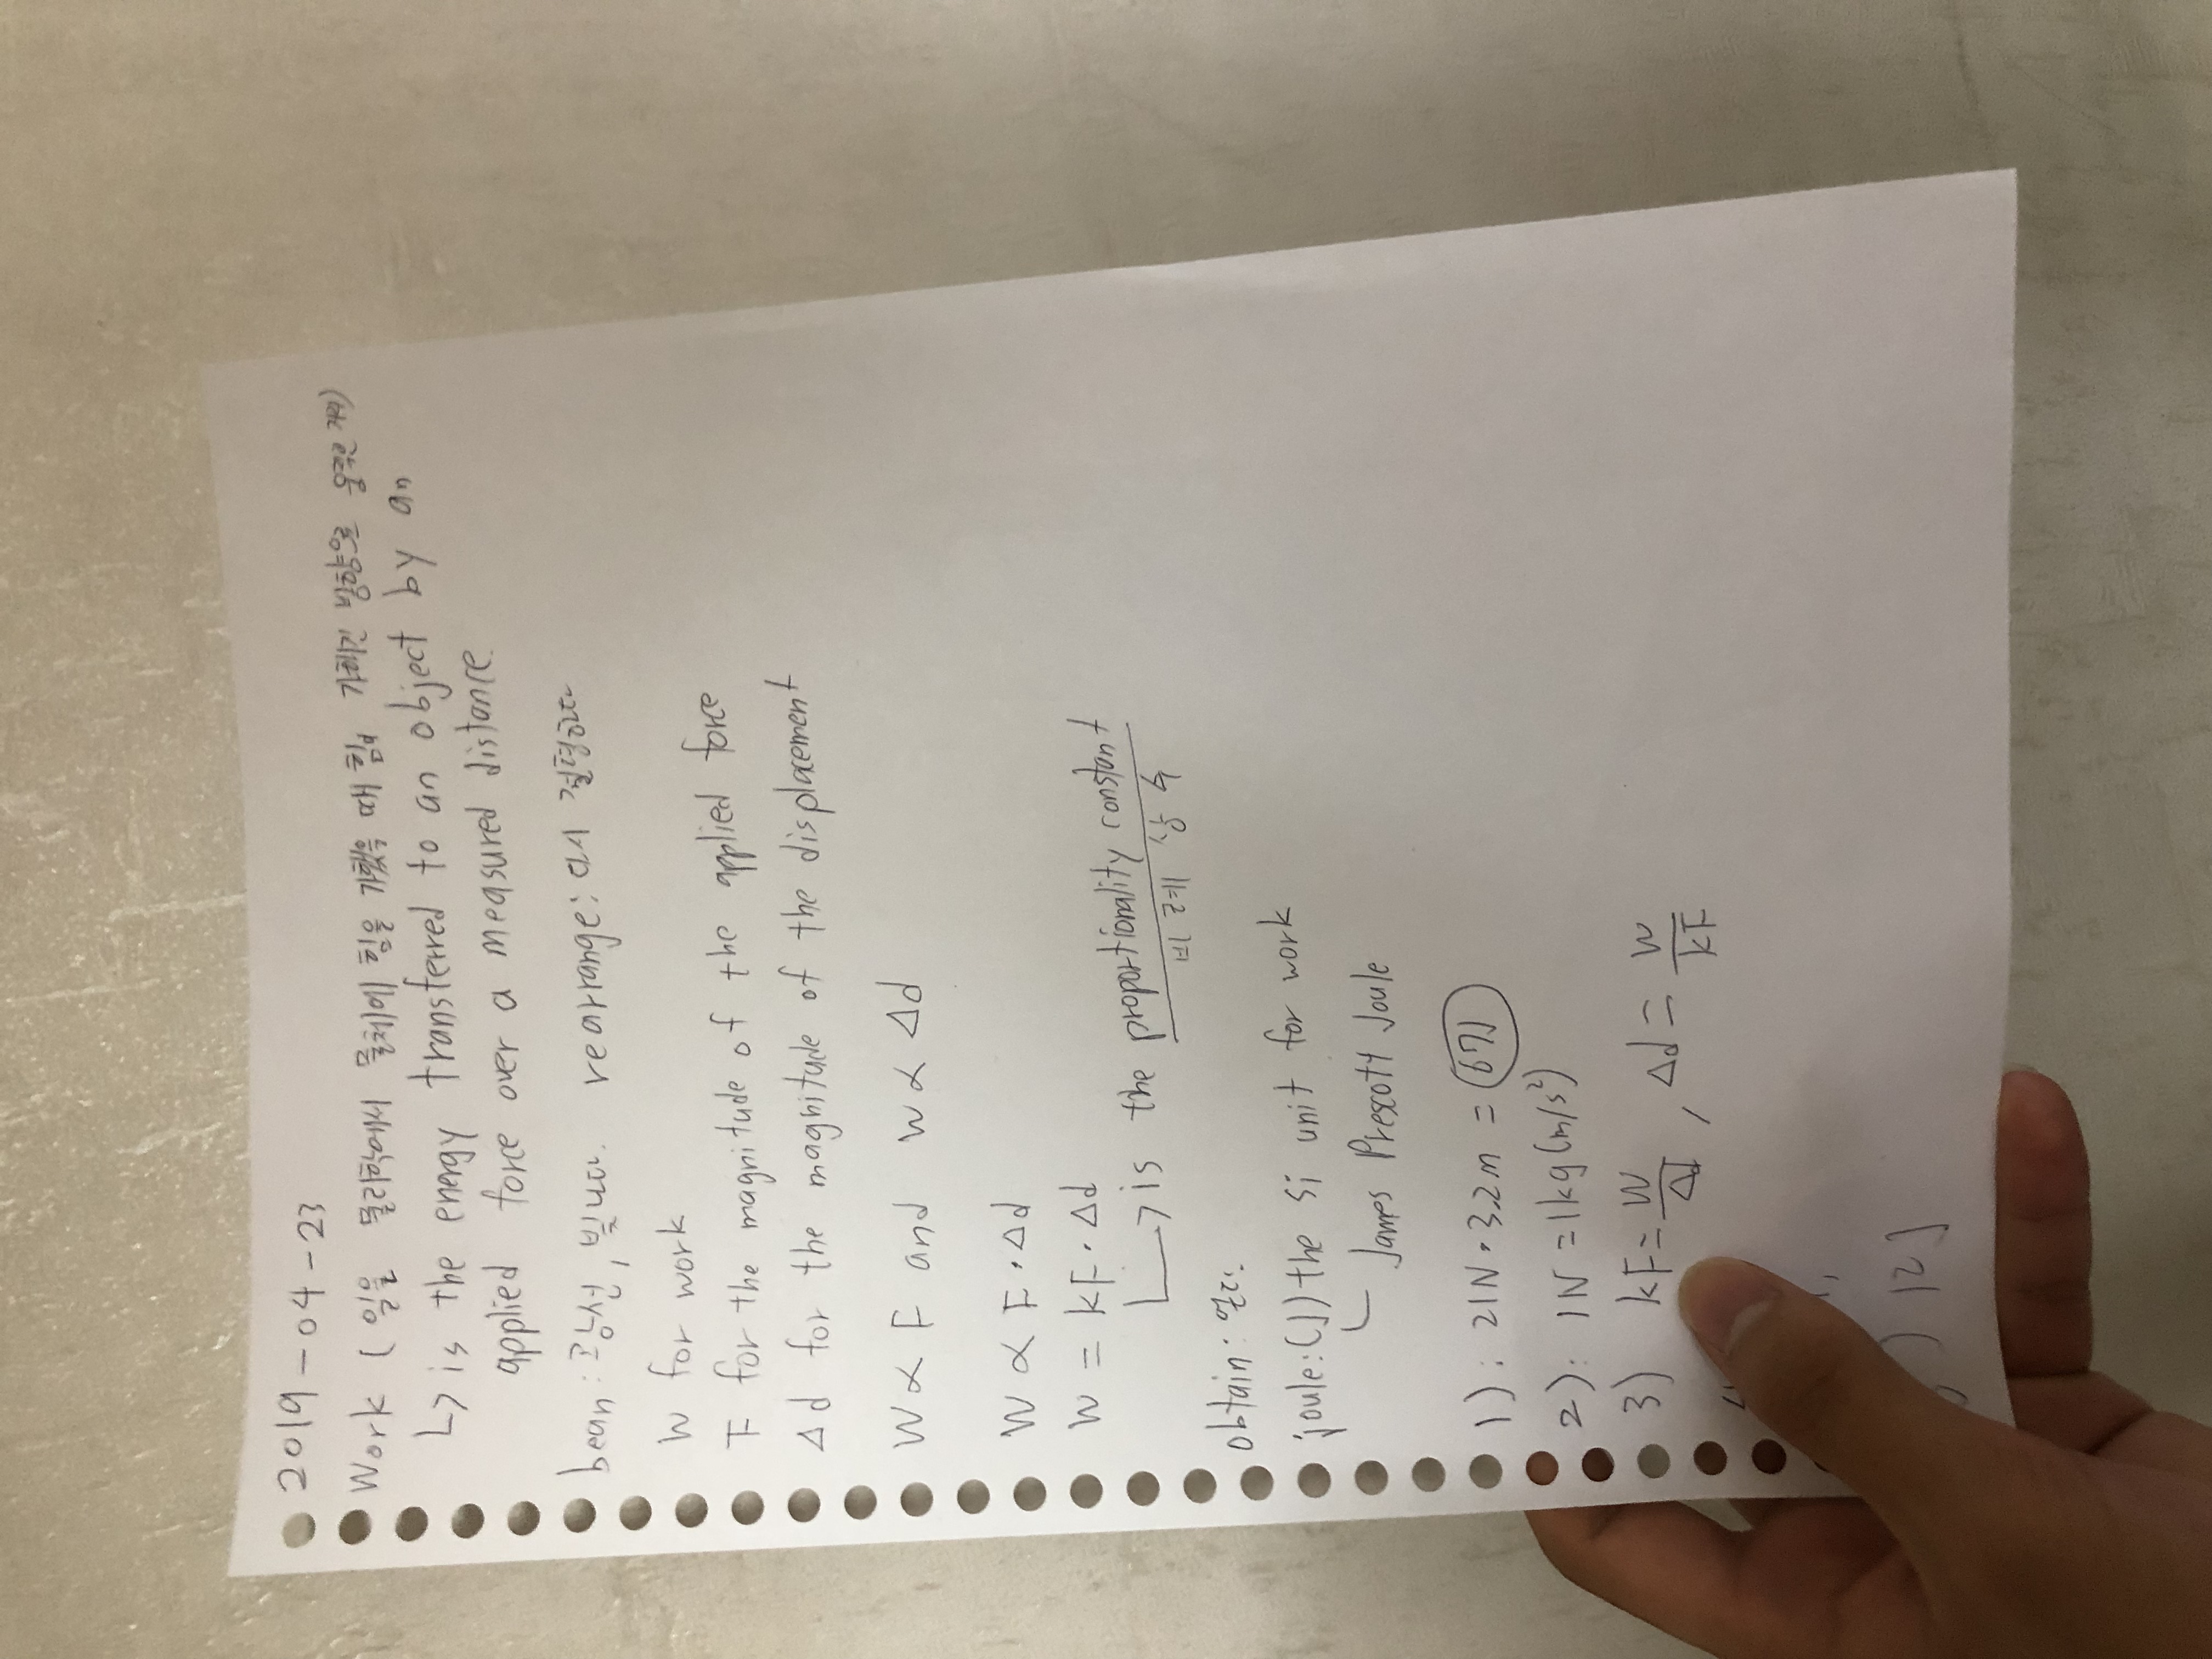 2019-04-23
Work (일을 물리학에서 물체에 힘을 가했을 때 힘이 가해진 방향으로 움직인 거리)
↳ is the energy transferred to an object by an
applied force over a measured distance
bean: 광선, 빛나다. rearrange: 재
W for work
F for the magnitude of the applied force
Δd for the magnitude of the displacement
W ∝ F and W ∝ Δd
W ∝ F·Δd
W = kF·Δd
↳ is the proportionality constant
비례 상수
obtain: 얻다.
joule:(J) the si unit for work
James Prescott Joule
1): 21N·3.2m = 67J
2): 1N = 1kg(m/s²)
3) kF = W/Δd, Δd = W/kF
) 12J